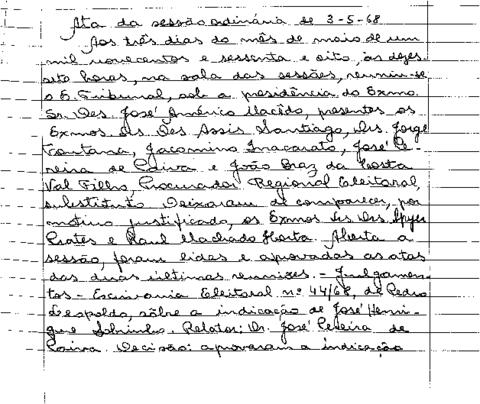 Ata da sessão ordinária de 3-5-68
Aos três dias do mês de maio de um
mil novecentos e sessenta e oito, às dezes-
sete horas, na sala das sessões, reuniu-se
o E. Tribunal, sob a presidência do Exmo.
Sr. Des. José Américo Macêdo, presentes os
Exmos Srs. Des Assis Santiago, Drs. Jorge
Fontana, Jacomino Inacarato, José Pe-
reira de Paiva e João Braz da Costa
Val Filho, Procurador Regional Eleitoral,
substituto. Deixaram de comparecer, por
motivo justificado, os Exmos Srs. Drs.
Prates e Raul Machado Horta. Aberta a
sessão, foram lidas e aprovadas as atas
das duas últimas reuniões. - Julgamen-
tos - Escrivania Eleitoral nº 44/68, de Pedro
Leopoldo, sôbre a indicação de José Henri-
que Sobrinho. Relator: Dr. José Pereira de
Paiva. Decisão: aprovaram a indicação